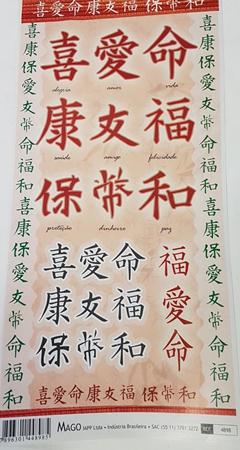 喜愛命康友福保幣和
喜康保愛友幣命福和喜康保愛友幣命福和
喜愛命
alegria amor vida
康友福
saúde amigo felicidade
保幣和
proteção dinheiro paz
喜愛命
康友福
保幣和
福
愛
命
喜康保愛友幣命福和喜康保愛友幣命福和
喜愛命康友福保幣和
MAGO IAPP Ltda • Indústria Brasileira • SAC (55 11) 3781 3272 REF. 4898